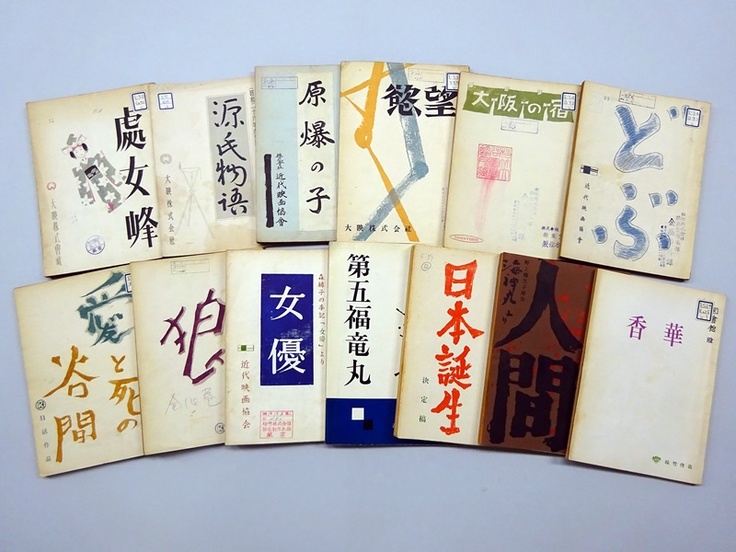 處女峰
大映株式會社
源氏物語
大映株式会社
原爆の子
近代映画協會
慾望
大映株式会社
大阪の宿
どぶ
近代映画協會
愛
と死の
谷間
日活作品
狼
森赫子の本記「女優」より
女優
近代映画協会
第五福竜丸
日本誕生
決定稿
人間
より
香華
松竹作品